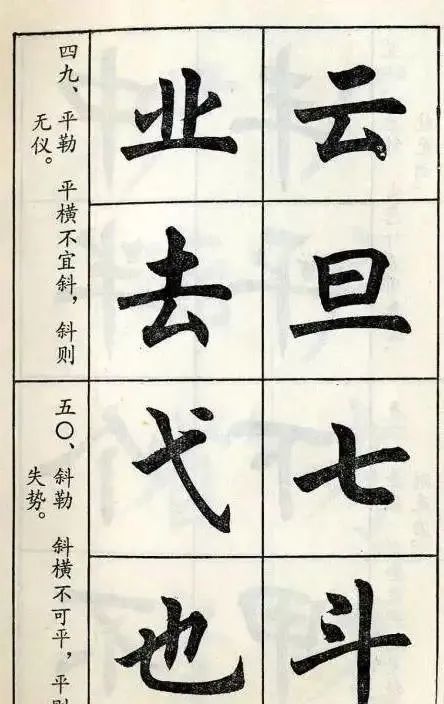 云
旦
七
斗
业
去
弋
也
四九、平勒 平横不宜斜，斜则
无仪。
五〇、斜勒 斜横不可平，平则
失势。